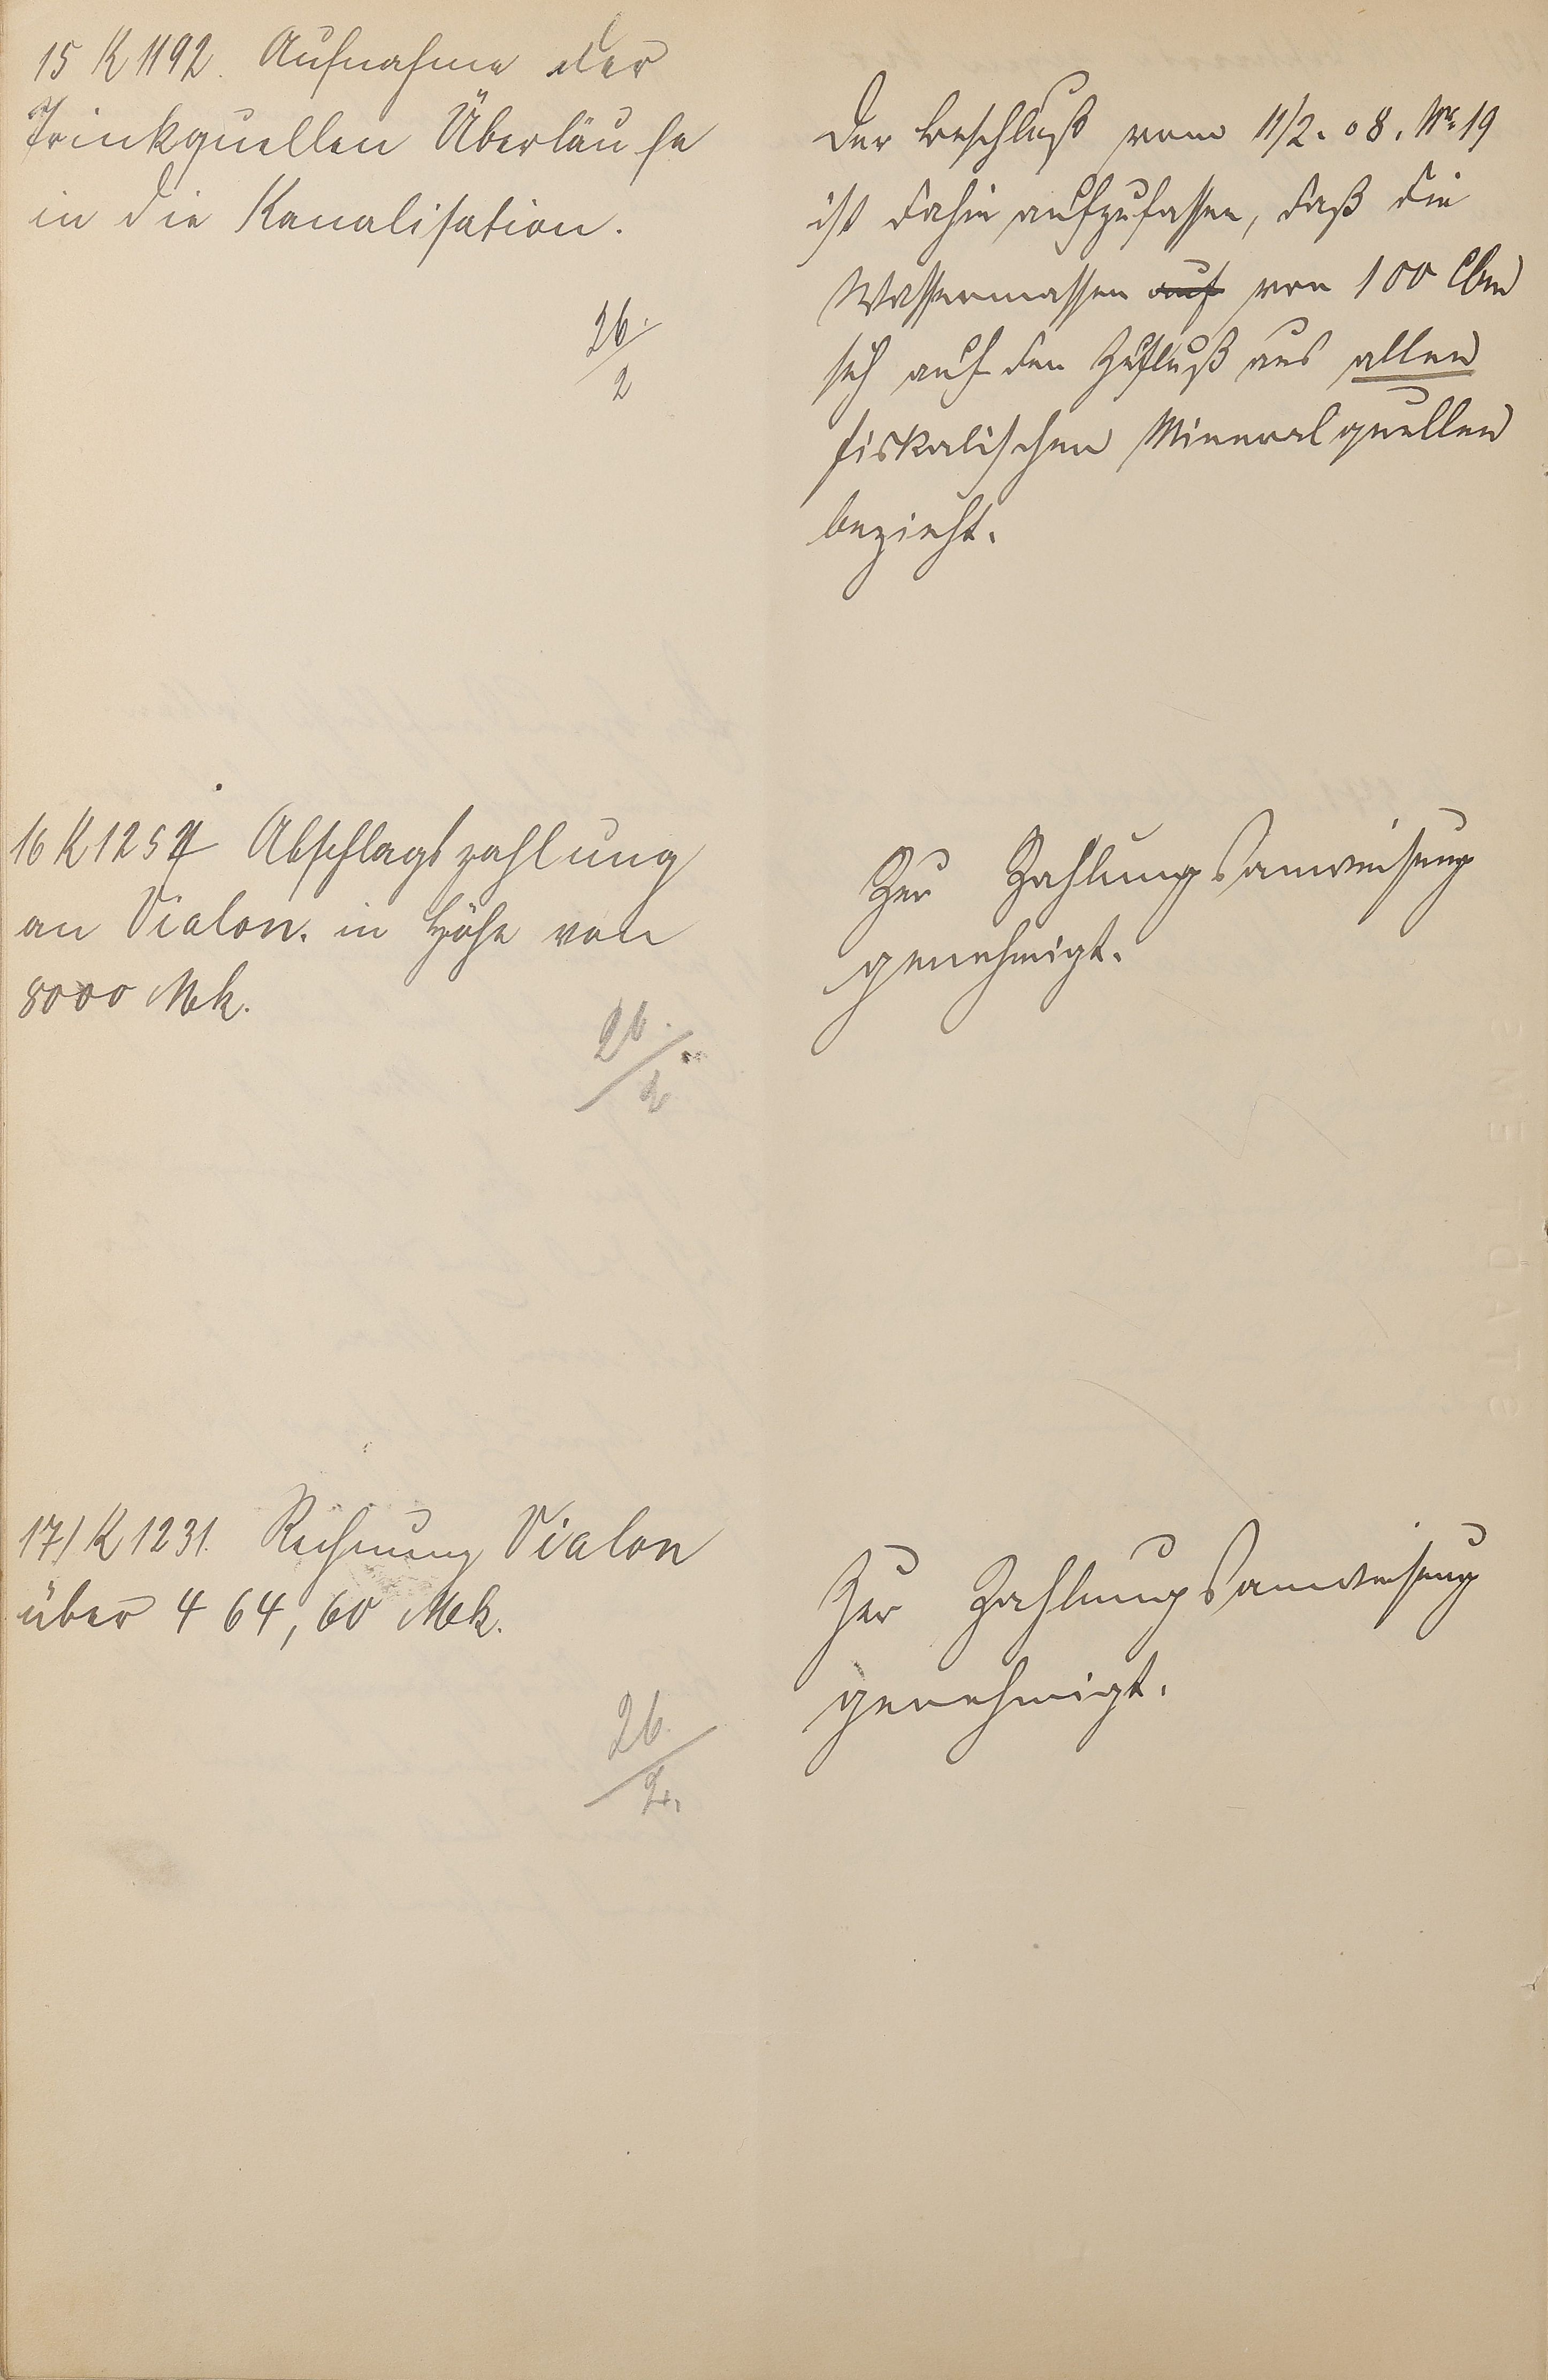 15 K 1192. Aufnahme der
Trinkquellen Überläufe
in die Kanalisation.
26.
2
Der Beschluß vom 11/2. 08. Nr. 19
ist dahin aufzufassen, daß die
Wassermassen auf von 100 Cbm
sich auf den Zufluß aus allen
fiskalischen Mineralquellen
bezieht.
16 K 1254 Abschlagszahlung
an Vialon. in Höhe von
8000 Mk.
26.
2
Zur Zahlungsanweisung
genehmigt.
17/ K 1231. Rechnung Vialon
über 464,60 Mk.
26.
2.
Zur Zahlungsanweisung
genehmigt.